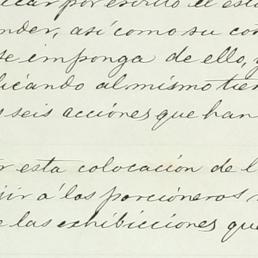 car por escrito el est
nder, así como su con
se imponga de ello, y
licando al mismo tien
s seis acciones que han
r esta colocación de l
jir á los porcioneros s
e las exhibicciones que